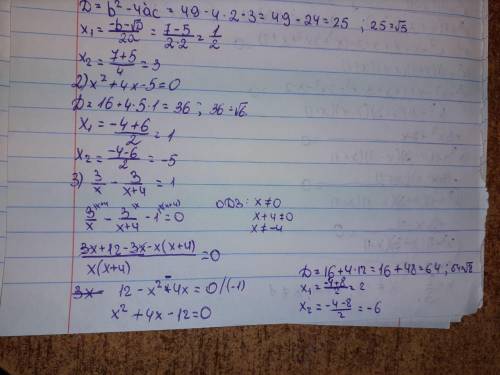 D = b² - 4ac = 49 - 4·2·3 = 49 - 24 = 25 ; 25=√5
x₁ = (-b-√D)/2a = (7-5)/(2·2) = 1/2
x₂ = (7+5)/4 = 3
2) x² + 4x - 5 = 0
D = 16 + 4·5·1 = 36 ; 36=√6
x₁ = (-4+6)/2 = 1
x₂ = (-4-6)/2 = -5
3) 3/x - 3/(x+4) = 1
3/x ^(x+4) - 3/(x+4) ^x - 1 ^x(x+4) = 0
ОДЗ: x ≠ 0
x+4 ≠ 0
x ≠ -4
(3x+12-3x-x(x+4))/(x(x+4)) = 0
3x 12 - x² - 4x = 0 /(-1)
x² + 4x - 12 = 0
D = 16 + 4·12 = 16 + 48 = 64 ; 64=√8
x₁ = (-4+8)/2 = 2
x₂ = (-4-8)/2 = -6